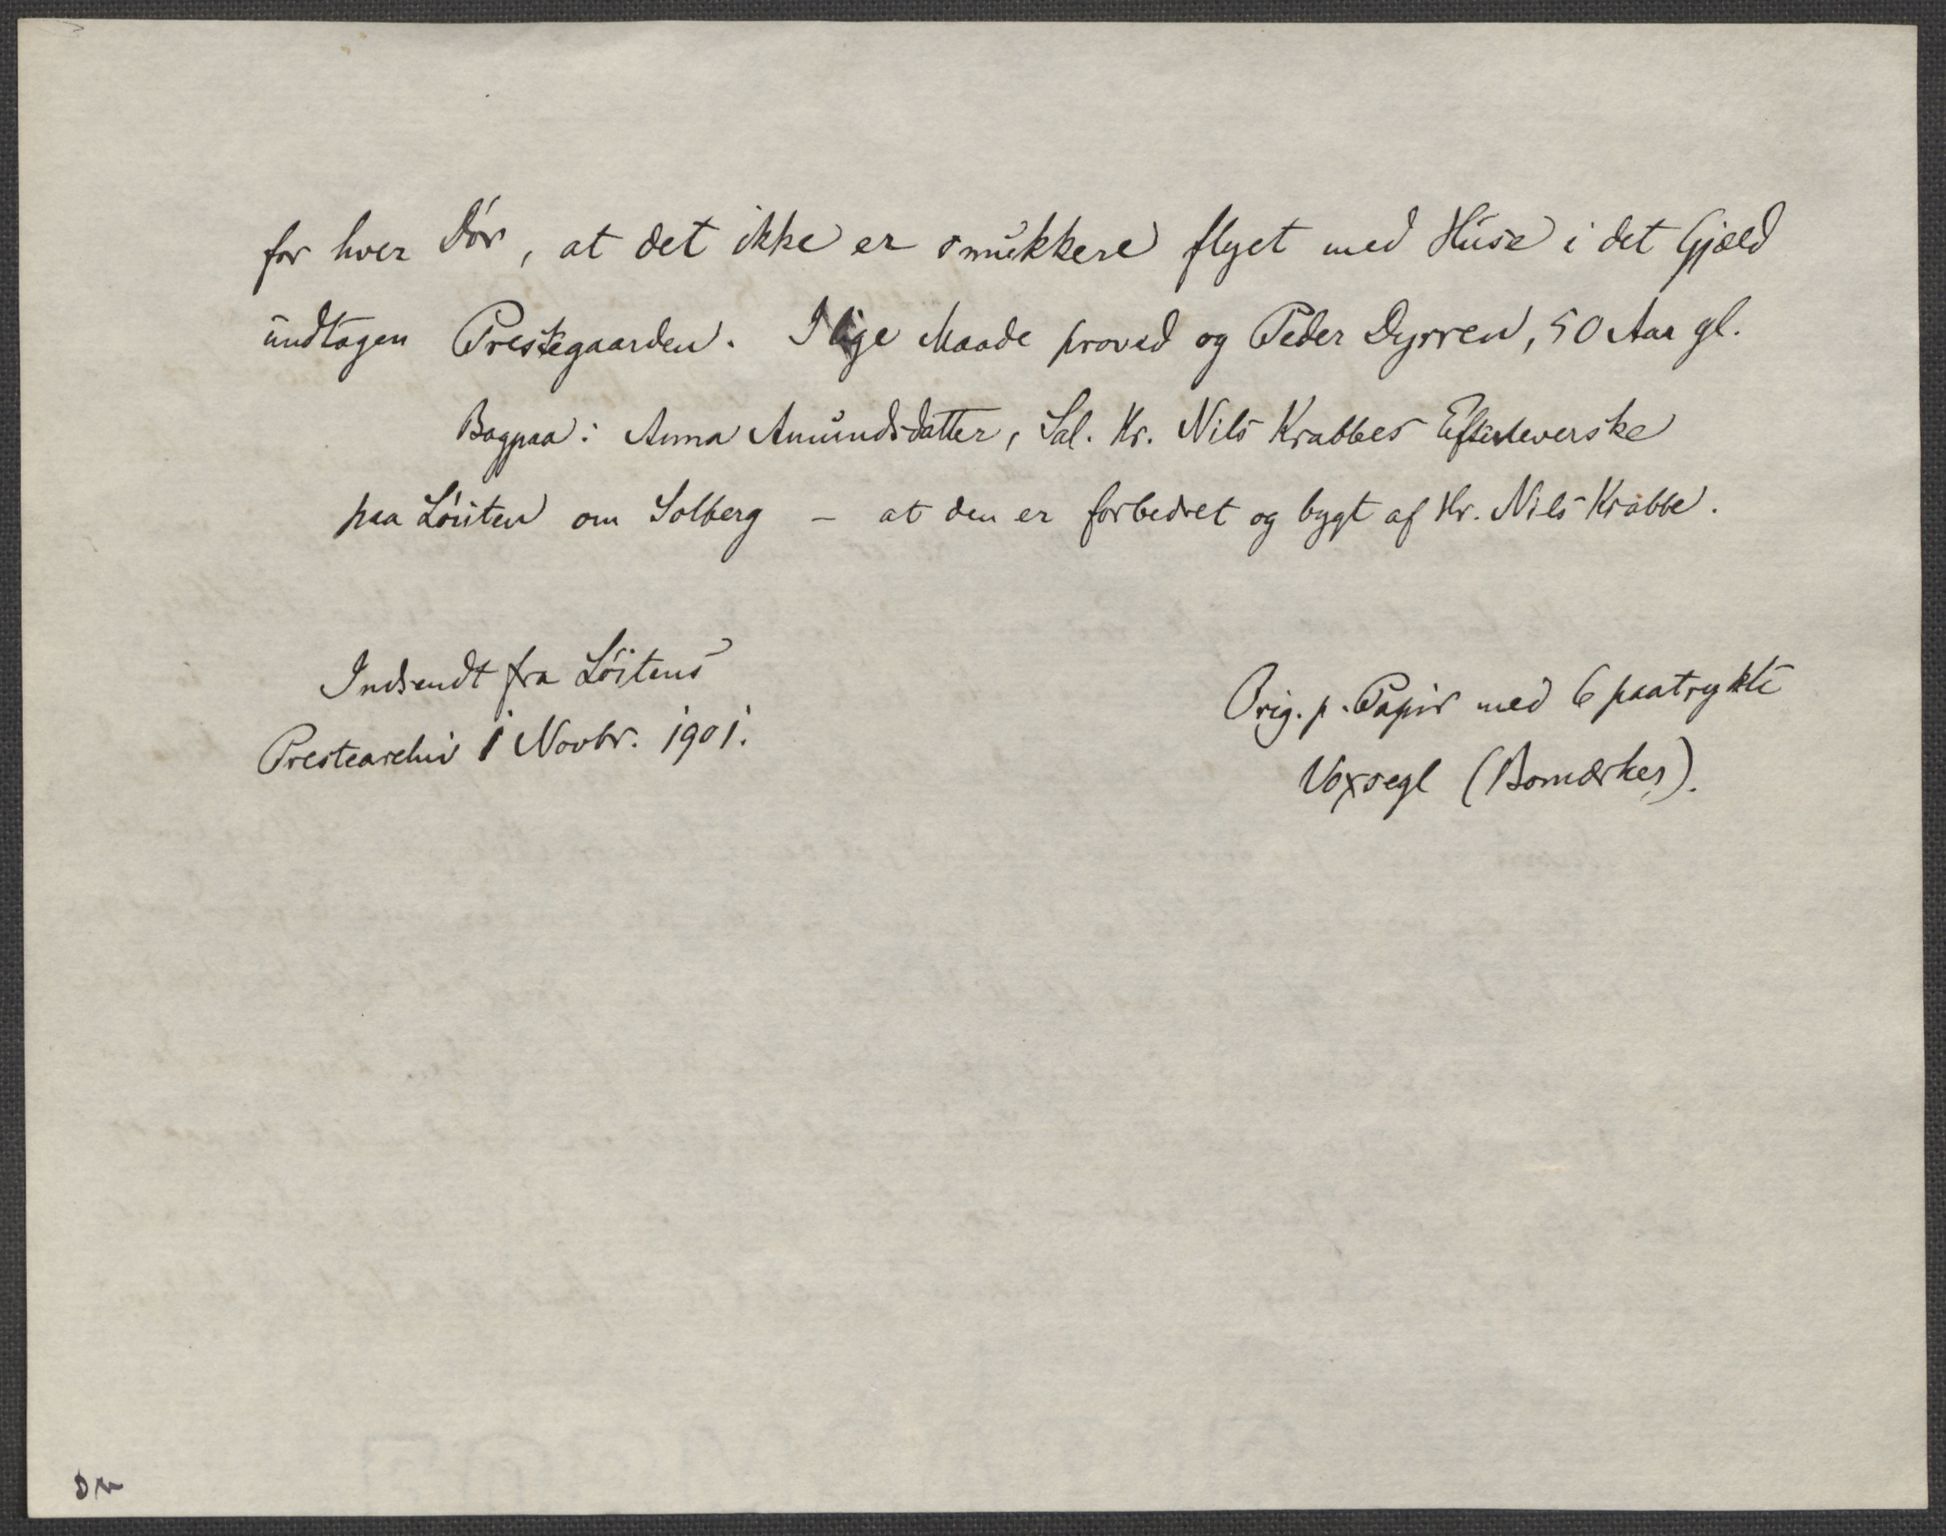 for hver Dør, at det ikke er smukkere flyet med Huse i det Gjæld
undtagen Prestegaarden. I lige Maade proved og Peder Dyrren, 50 Aar gl.
Bagpaa: Anna Amundsdatter, Sal. Hr. Nils Krabbes Efterleverske
paa Løiten om Solberg – at den er forbedret og bygt af Hr. Nils Krabbe.
Indsendt fra Løitens
Prestearchiv i Novbr. 1901.
Orig. p. Papir med 6 paatrykte
Voxsegl (Bomærker).